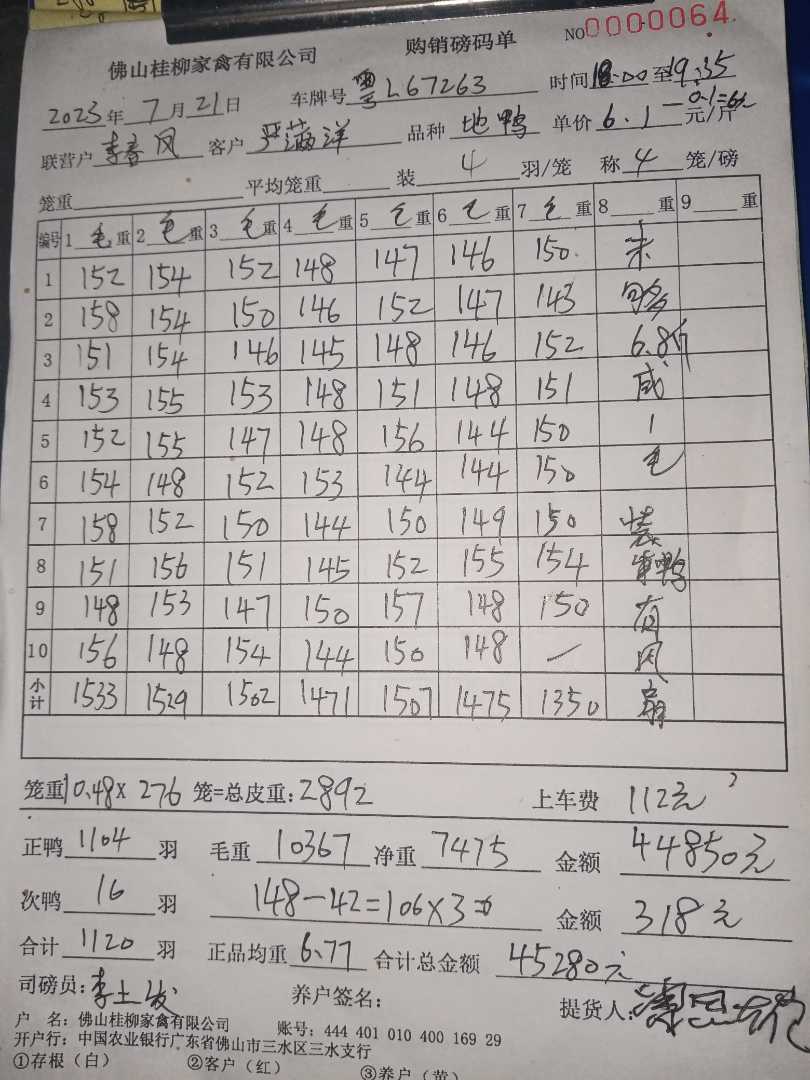 佛山桂柳家禽有限公司 购销磅码单 NO 0000064
2023年7月21日 车牌号 粤L67263 时间18:00至19:35
联营户 李春风 客户 严满洋 品种 地鸭 单价 6.1 元/斤
笼重 平均笼重 装 4 羽/笼 称 4 笼/磅
编号 1 毛 重 2 毛 重 3 毛 重 4 毛 重 5 毛 重 6 毛 重 7 毛 重 8 重 9 重
1 152 154 152 148 147 146 150 未
2 158 154 150 146 152 147 143 够
3 151 154 146 145 148 146 152 6.8斤
4 153 155 153 148 151 148 151 减
5 152 155 147 148 156 144 150 1
6 154 148 152 153 144 144 150 毛
7 158 152 150 144 150 149 150 装
8 151 156 151 145 152 155 154 鸭
9 148 153 147 150 157 148 150 有
10 156 148 154 144 150 148 — 风
小计 1533 1529 1502 1471 1507 1475 1350 扇
笼重 10.48× 276 笼=总皮重: 2892 上车费 112元
正鸭 1104 羽 毛重 10367 净重 7475 金额 44850元
次鸭 16 羽 148-42=106×3= 金额 318元
合计 1120 羽 正品均重 6.77 合计总金额 45280元
司磅员: 李土发 养户签名: 提货人:
户 名: 佛山桂柳家禽有限公司 账号: 444 401 010 400 169 29
开户行: 中国农业银行广东省佛山市三水区三水支行
①存根(白) ②客户(红) ③养户(黄)